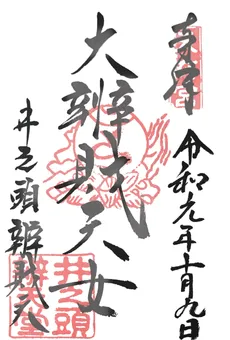 奉拝
令和元年十月九日
大辨財天女
井之頭辨財天
井之頭